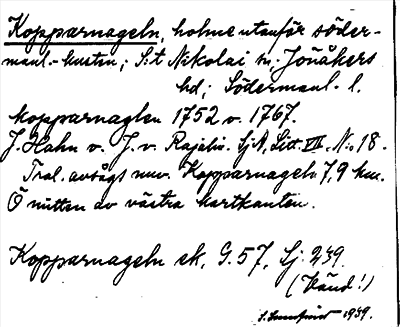 Kopparnageln, holme utanför söder-
manl.-kusten; S:t Nikolai sn. Jönåkers
hd; Södermanl. l.
kopparnaglen 1752 v. 1767.
J. Hahn v. J. v. Rajalin. SjA, Litt. VII. N:o 18.
Tral. avsågs nuv. Kopparnageln 7,9 km.
Ö mitten av västra kartkanten.
Kopparnageln ek, G. 57, Sj. 239.
(Vänd!)
1939.